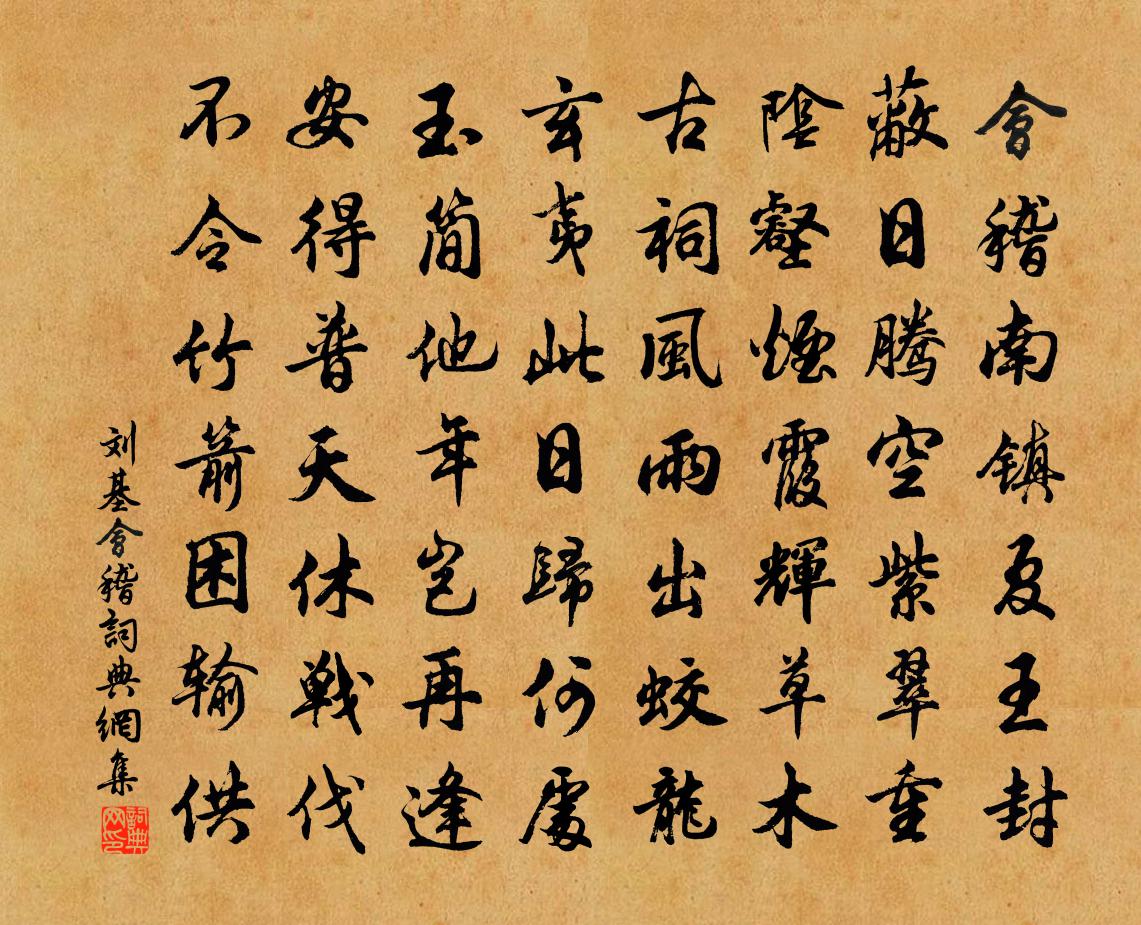 會稽南镇夏王封
蔽日腾空紫翠重
陰壑煙霞輝草木
古祠風雨出蛟龍
玄夷此日歸何處
玉简他年岂再逢
安得普天休戦伐
不令竹箭困输供
刘基會稽詞典網集
詞典网印